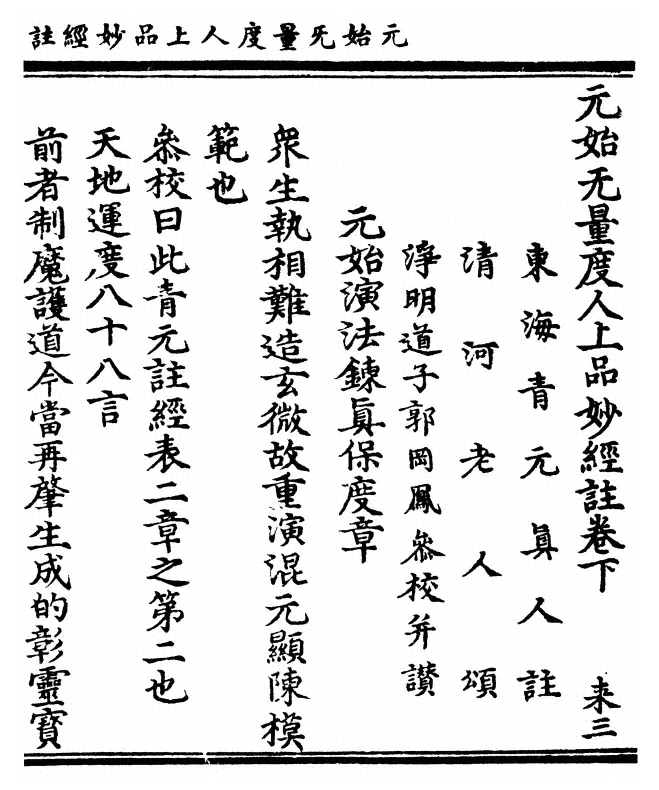 元始旡量度人上品妙經註
元始无量度人上品妙經註卷下 来三
東海青元眞人註
清河老人頌
淨明道子郭岡鳳叅校并讃
元始演法鍊眞保度章
衆生執相難造玄微故重演混元顯陳模
範也
叅校曰此青元註經表二章之第二也
天地運度八十八言
前者制魔護道今當再肇生成的彰靈寳